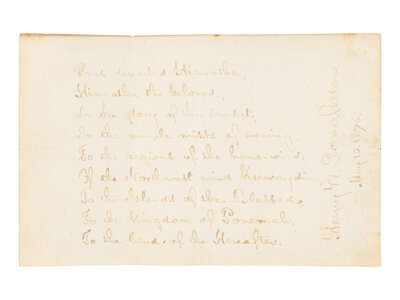 Thus departed Hiawatha,
Hiawatha the Beloved,
In the glory of the sunset,
In the purple mists of evening,
To the regions of the home-wind,
Of the Northwest wind Keewaydin,
To the Islands of the Blessed,
To the Kingdom of Ponemah,
To the Land of the Hereafter.
Henry W. Longfellow
May 1876.